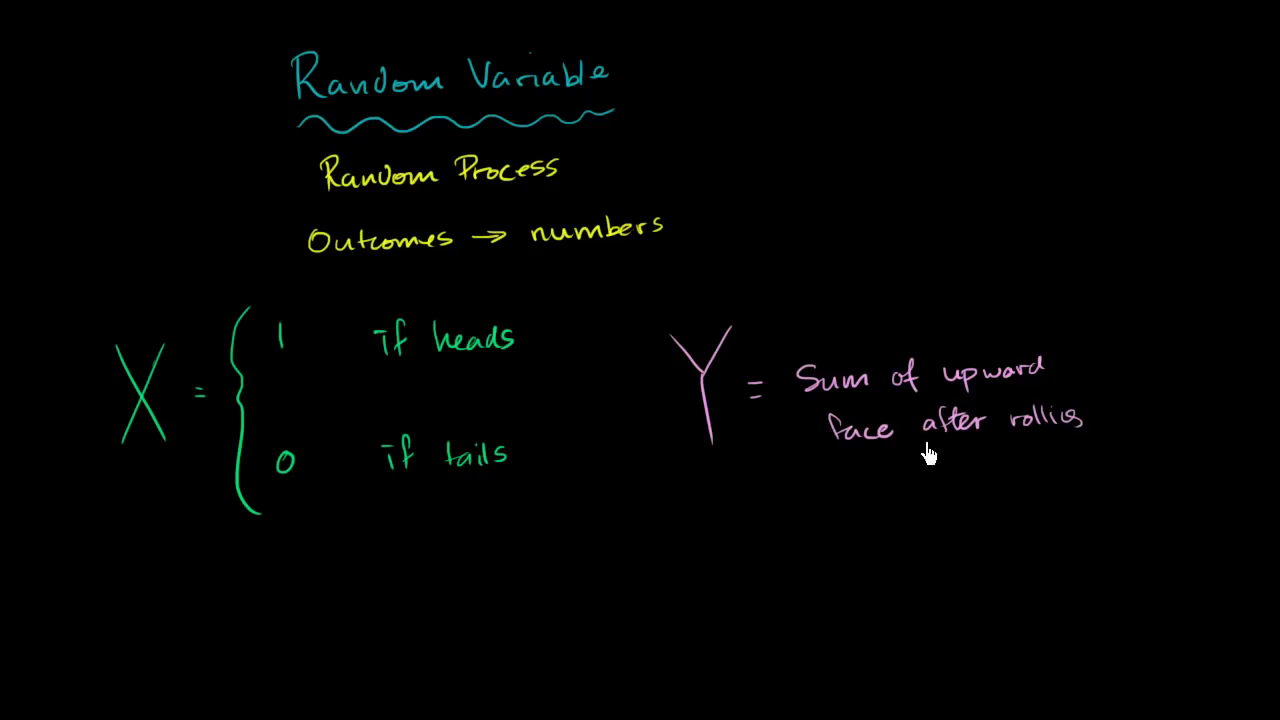 Random Variable
Random Process
Outcomes → numbers
X = { 1 if heads
0 if tails
Y = Sum of upward
face after rolling